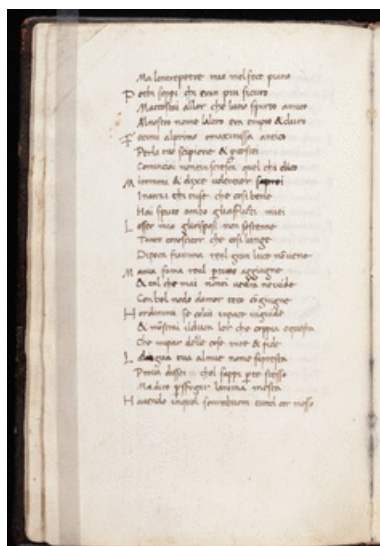 Ma lenterpetre mio mel fece piano
Pothi seppi chi eran piu sicuro
Maccostai allor che luno spirto amico
Al nostro nome laltro era empio & duro
Fecimi alprimo omaxinissa antico
Perlo tuo scipione & per costei
Cominciai nontincresca quel chi dico
Mirommi & dixe volentier saprei
Inanzi chi tuse che cosi bene
Hai spiato ambo gliaffecti miei
Lesser mio glirisposi non sostene
Tanto conoscitor che cosi lunge
Dipoca fiamma real gran luce nonvene
Matua fama real pertutto aggiugne
& tal che mai nonti vedra nevide
Con bel nodo damor teco cogiugne
Hordimmi se colui inpace viguide
& mostrai ilduca lor che coppia equesta
Che mipar delle cose rare & fide
Lalingua tua almio nome sipresta
Prova dissei chel sappi perte stesso
Ma diro persfogar lanima mesta
Havendo inquel sommohuom tuttol cor messo